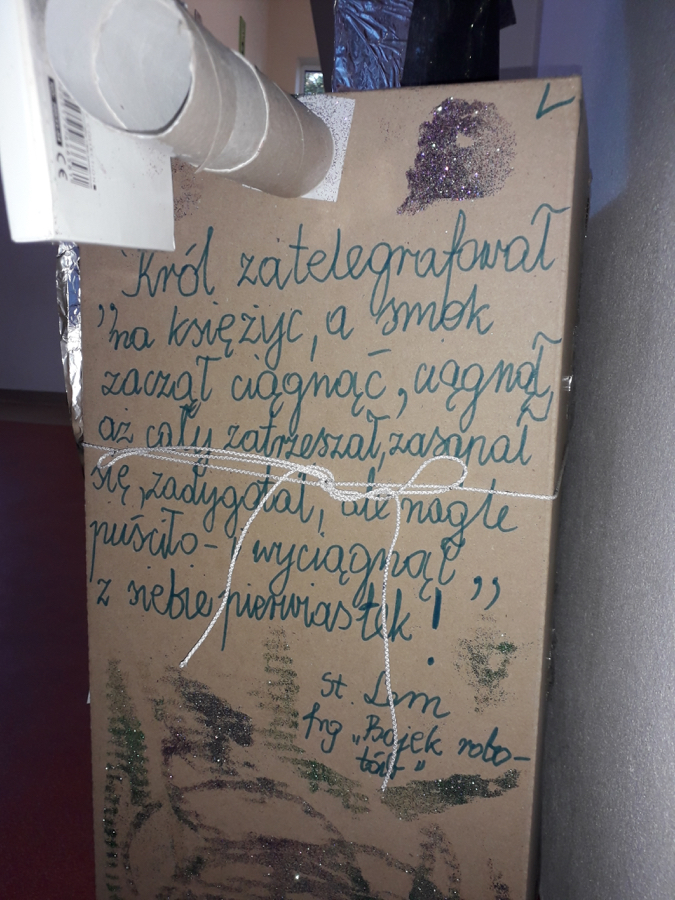 Król zatelegrafował
„na księżyc, a smok
zaczął ciągnąć, ciągnął,
aż cały zatrzeszał, zasapał
się, zadygotał, ale nagle
puściło - i wyciągnął
z siebie pierwiastek!”
St. Lem
frg „Bajek robo-
tów”